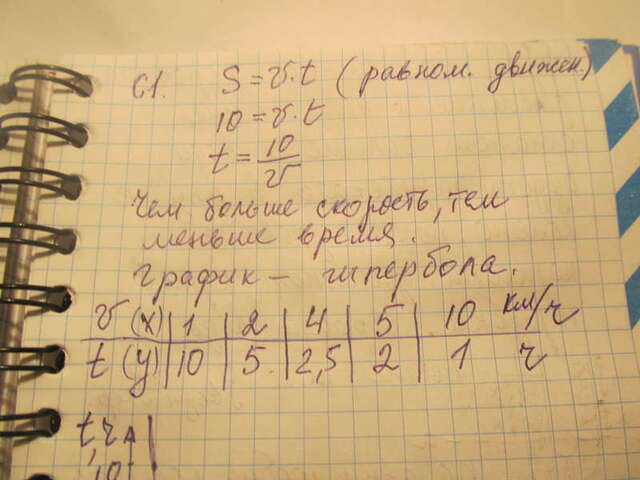 С1. S = v·t (равном. движен.)
10 = v·t
t = 10/v
Чем больше скорость, тем
меньше время.
График – гипербола.
v (x) | 1 | 2 | 4 | 5 | 10 км/ч
t (y) | 10 | 5 | 2,5 | 2 | 1 ч
t, ч
10